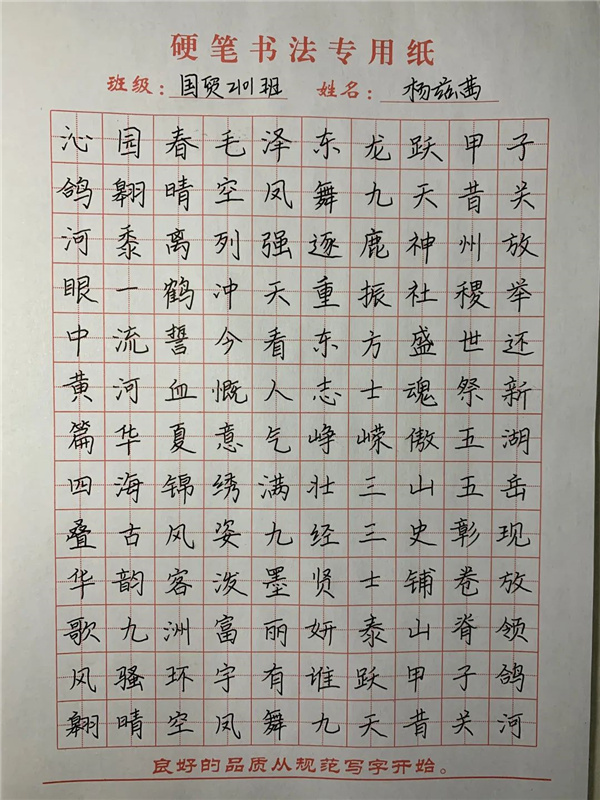 硬笔书法专用纸
班级：国贸2101班 姓名：杨兹茜
沁园春毛泽东龙跃甲子
鸽翱晴空凤舞九天昔关
河黍离列强逐鹿神州放
眼一鹤冲天重振社稷举
中流誓今看东方盛世还
黄河血慨人志士魂祭新
篇华夏意气峥嵘傲五湖
四海锦绣满壮三山五岳
叠古风姿九经三史彰现
华韵客泼墨贤士铺卷放
歌九洲富丽妍泰山脊领
风骚环宇有谁跃甲子鸽
翱晴空凤舞九天昔关河
良好的品质从规范写字开始。